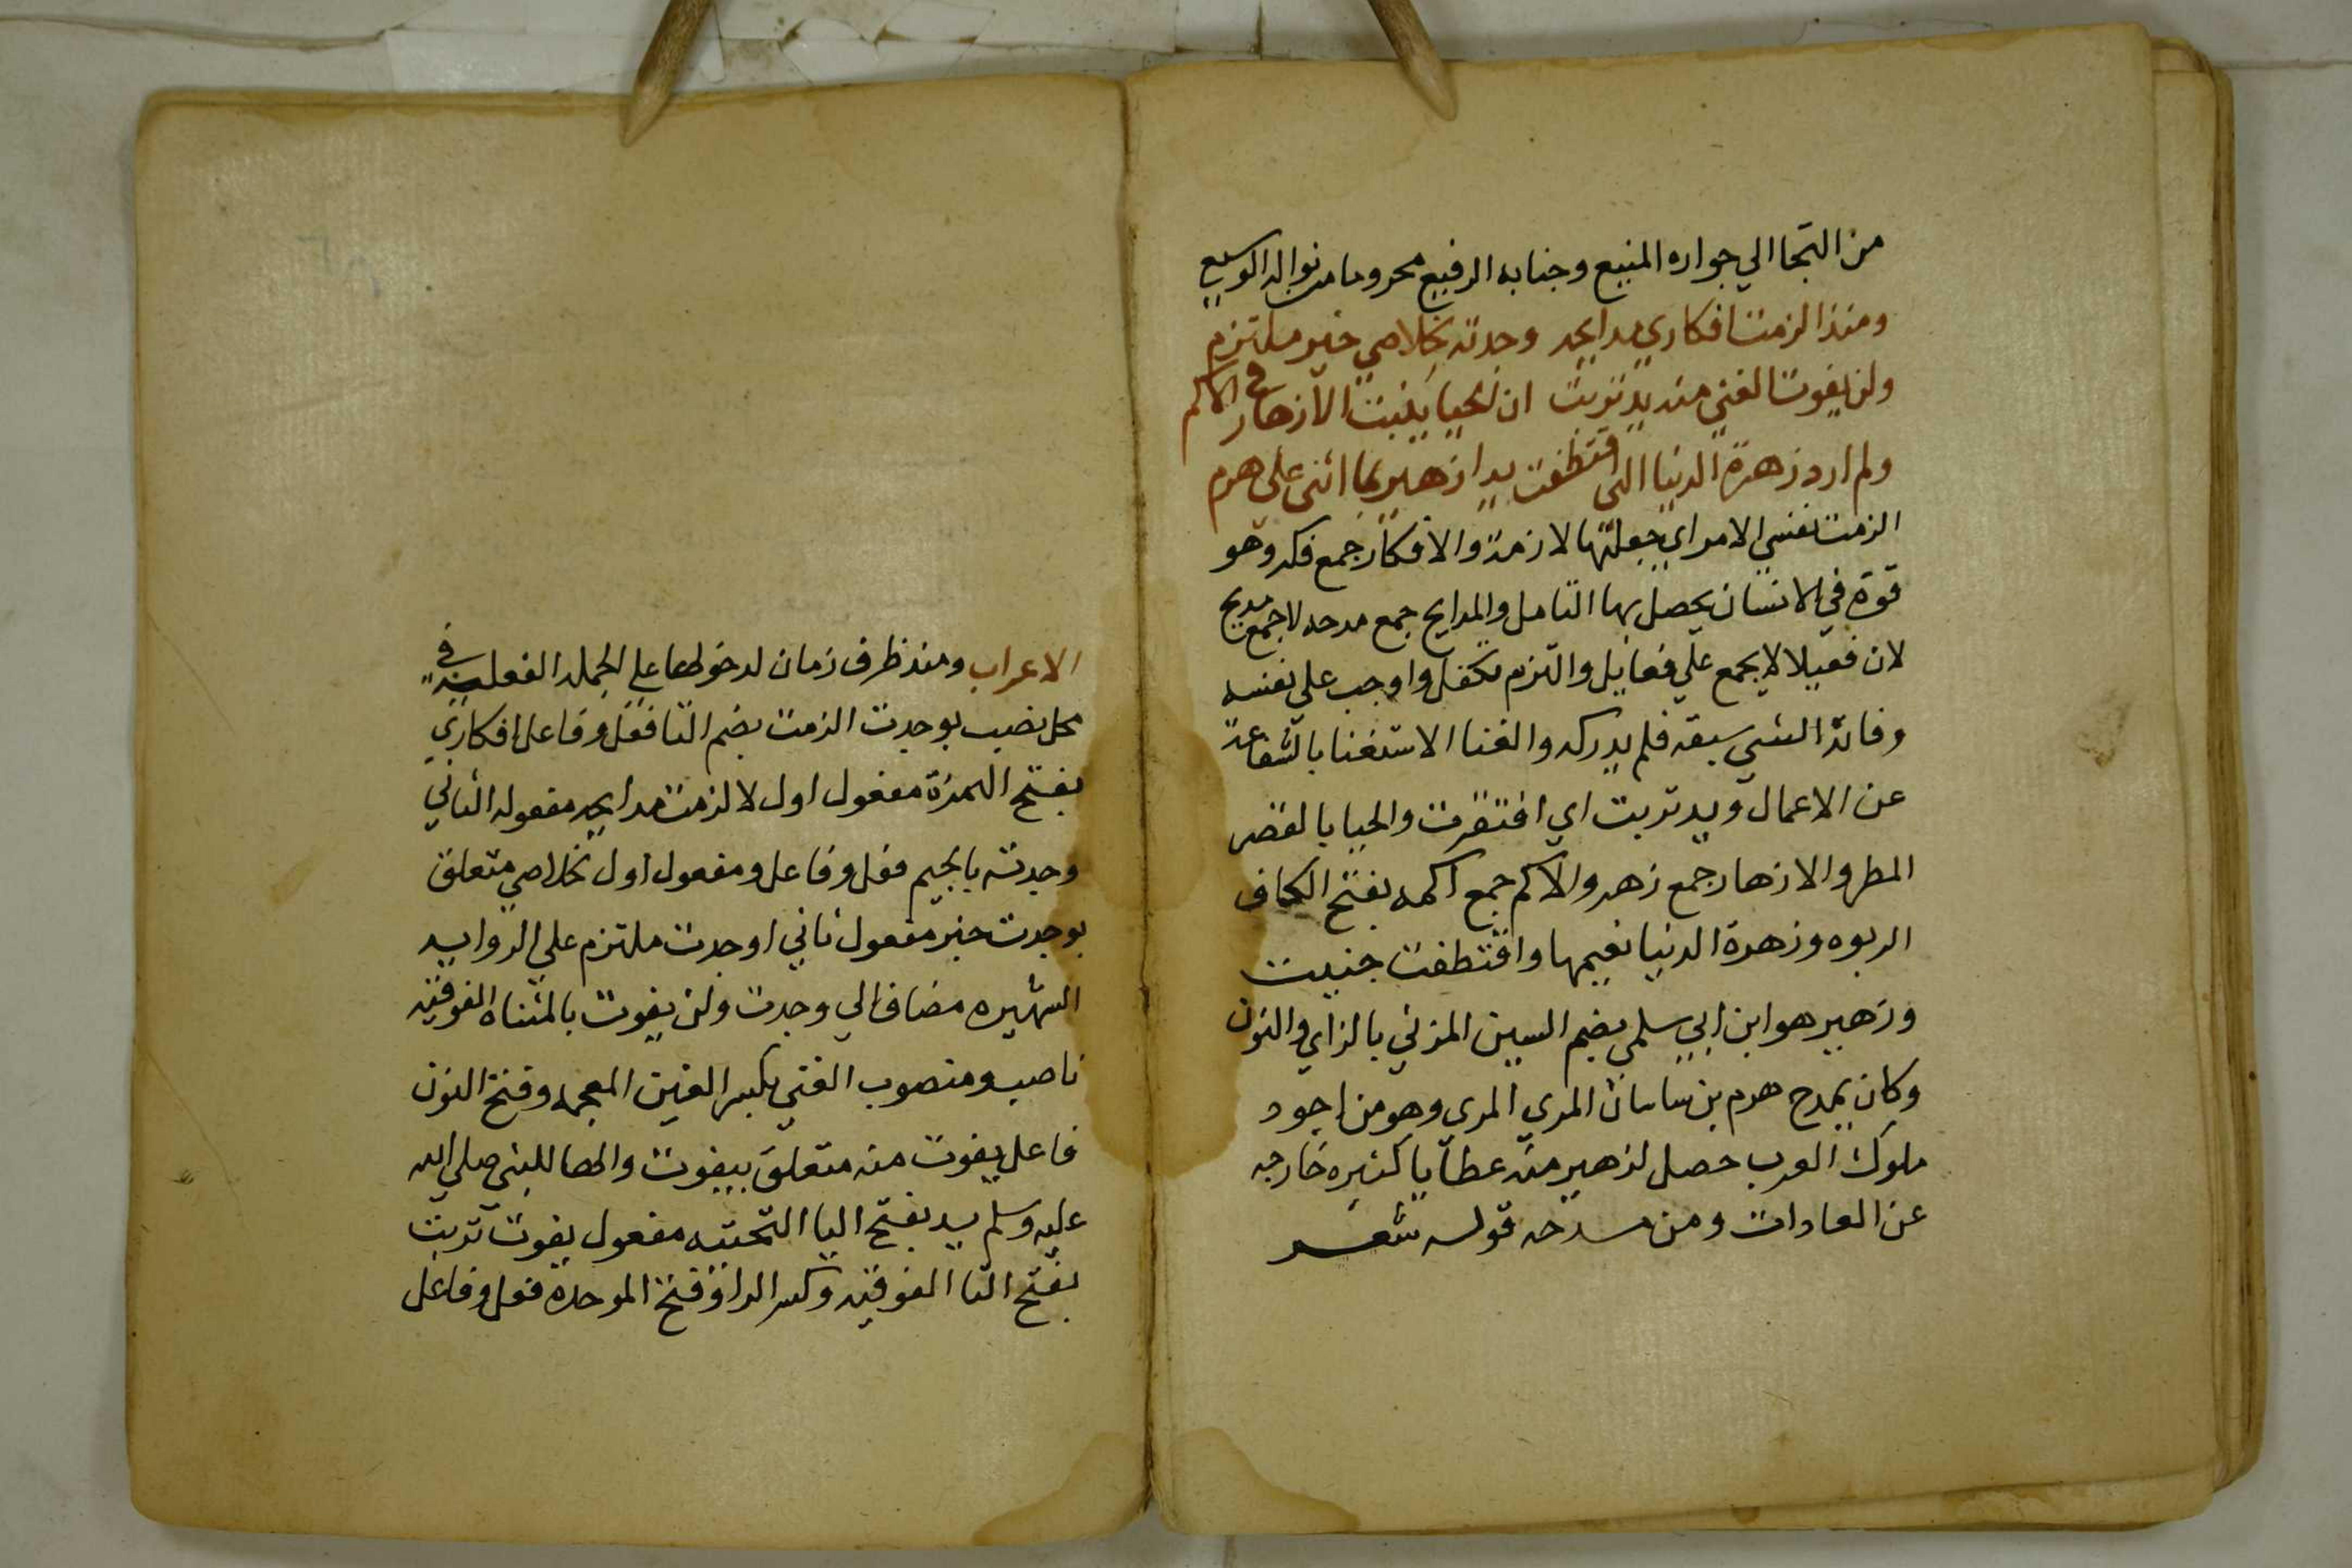 من التجا الي جواره المنيع وجنابه الرفيع محروما من نواله الوسيع
ومنذ الزمت افكاري مدايحه وجدته لخلاصي خير ملتزم
ولن يفوت الغني منه يد تربت ان الحيا ينبت الازهار في الاكم
ولم ارد زهرة الدنيا التي اقتطفت يدا زهير بما اثني علي هرم
الزمت نفسي الامر اي جعلتها لازمة والافكار جمع فكر وهو
قوة في الانسان يحصل بها التامل والمدايح جمع مدحه لا جمع مديح
لان فعيلا لا يجمع علي فعايل والتزم تكفل واوجب علي نفسه
وفاته الشي سبقه فلم يدركه والغنا الاستغنا بالشفاعة
عن الاعمال ويد تربت اي افتقرت والحيا بالقصر
المطر والازهار جمع زهر والاكم جمع اكمه بفتح الكاف
الربوه وزهرة الدنيا نعيمها واقتطفت جنيت
وزهير هو ابن ابي سلمي بضم السين المزني بالزاي والنون
وكان يمدح هرم بن ساسان المري المري وهو من اجود
ملوك العرب حصل لزهير منه عطايا كثيره خارجه
عن العادات ومن مدحه قوله شعر
الاعراب ومنذ ظرف زمان لدخولها علي الجمله الفعليه في
محل نصب بوجدت الزمت بضم التا فعل وفاعل افكاري
بفتح الهمزة مفعول اول لالزمت مدايحه مفعوله الثاني
وجدته بالجيم فعل وفاعل ومفعول اول لخلاصي متعلق
بوجدت خير مفعول ثاني لوجدت ملتزم علي الروايه
الشهيره مضاف الي وجدت ولن يفوت بالمثناه الفوقيه
ناصب ومنصوب الغني بكسر الغين المعجمه وفتح النون
فاعل يفوت منه متعلق بيفوت والها للنبي صلي الله
عليه وسلم يد بفتح اليا التحتيه مفعول يفوت تربت
بفتح التا الفوقيه وكسر الرا وفتح الموحدة فعل وفاعل